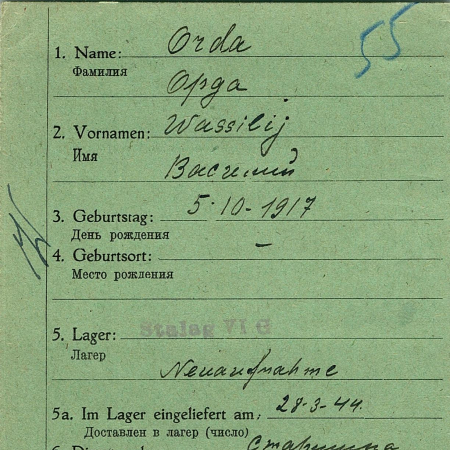 55
1. Name: Orda
Фамилия
Орда
2. Vornamen: Wassilij
Имя
Василий
3. Geburtstag: 5·10-1917
День рождения
4. Geburtsort: –
Место рождения
5. Lager: Stalag VI G
Лагер
Neuaufnahme
5a. Im Lager eingeliefert am: 28-3-44.
Доставлен в лагер (число)
Старшина